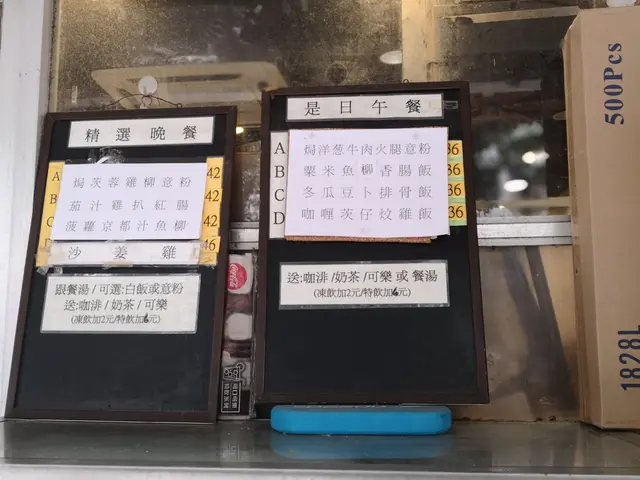 精選晚餐
A 焗茨蓉雞柳意粉 42
B 茄汁雞扒紅腸 42
C 菠蘿京都汁魚柳 42
D 沙姜雞 46
跟餐湯/可選:白飯或意粉
送:咖啡/奶茶/可樂
(凍飲加2元/特飲加6元)
是日午餐
A 焗洋葱牛肉火腿意粉 36
B 粟米魚柳香腸飯 36
C 冬瓜豆卜排骨飯 36
D 咖喱茨仔炆雞飯 36
送:咖啡/奶茶/可樂 或 餐湯
(凍飲加2元/特飲加6元)
500Pcs
1828L